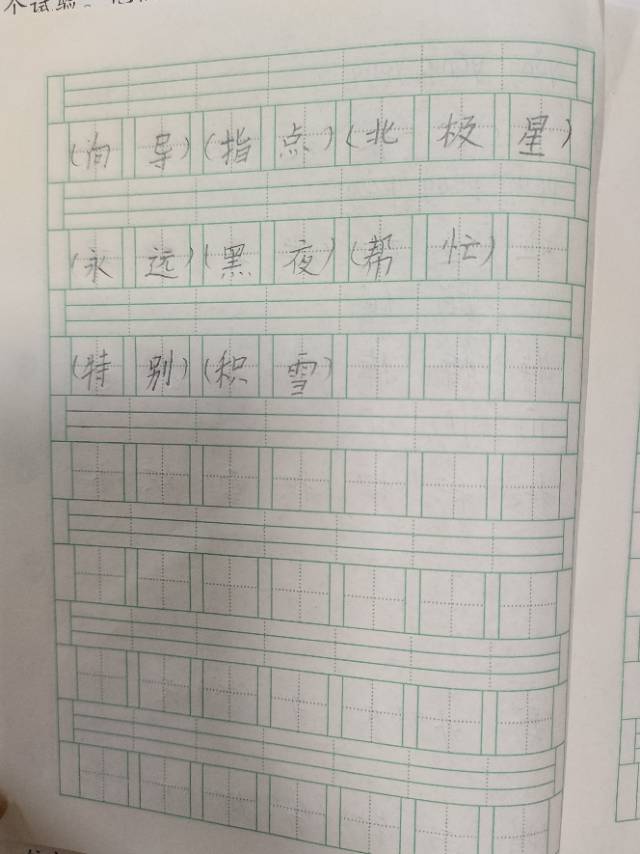 个试验。
(向导)(指点)(北极星)
(永远)(黑夜)(帮忙)
(特别)(积雪)